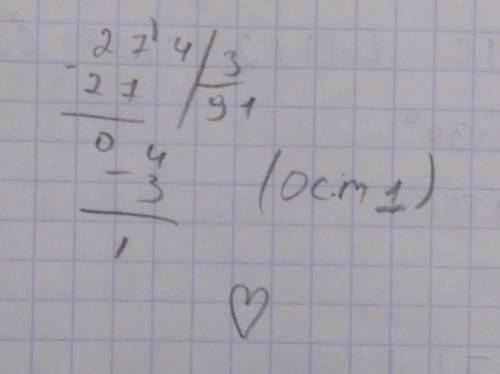 27'4/3
-27/91
04
-3 (Ост 1)
1